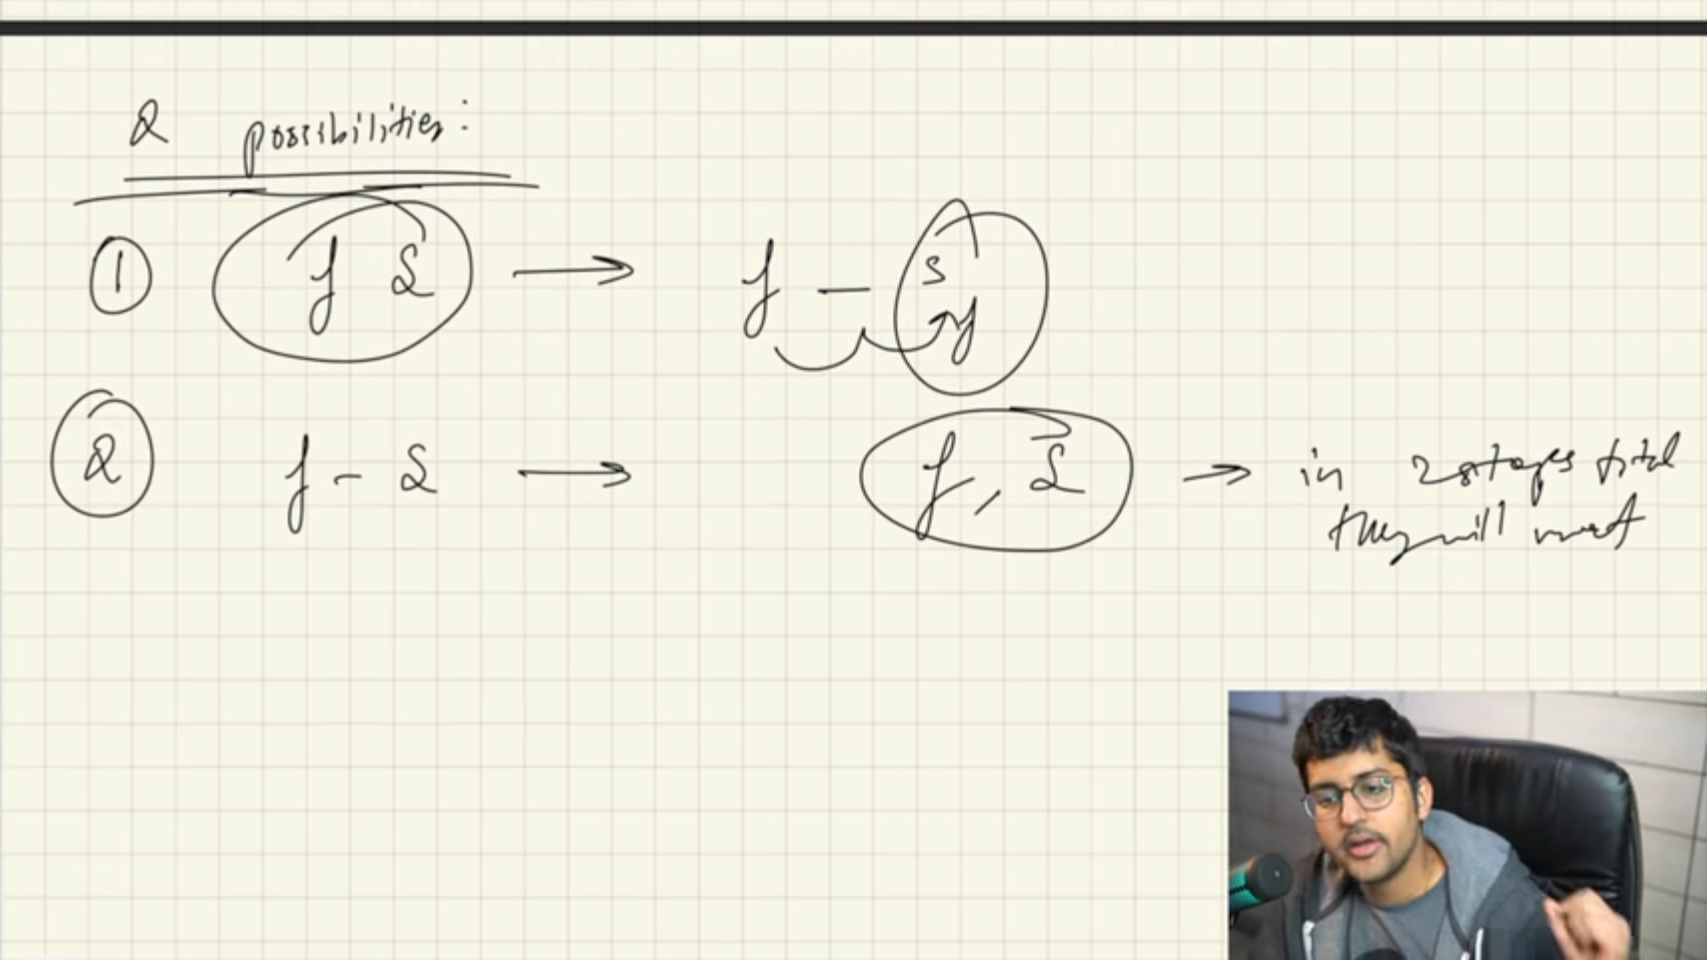 2 possibilities:
① f S → f - s
f
② f - S → f, S → in 2 stages total
they will meet